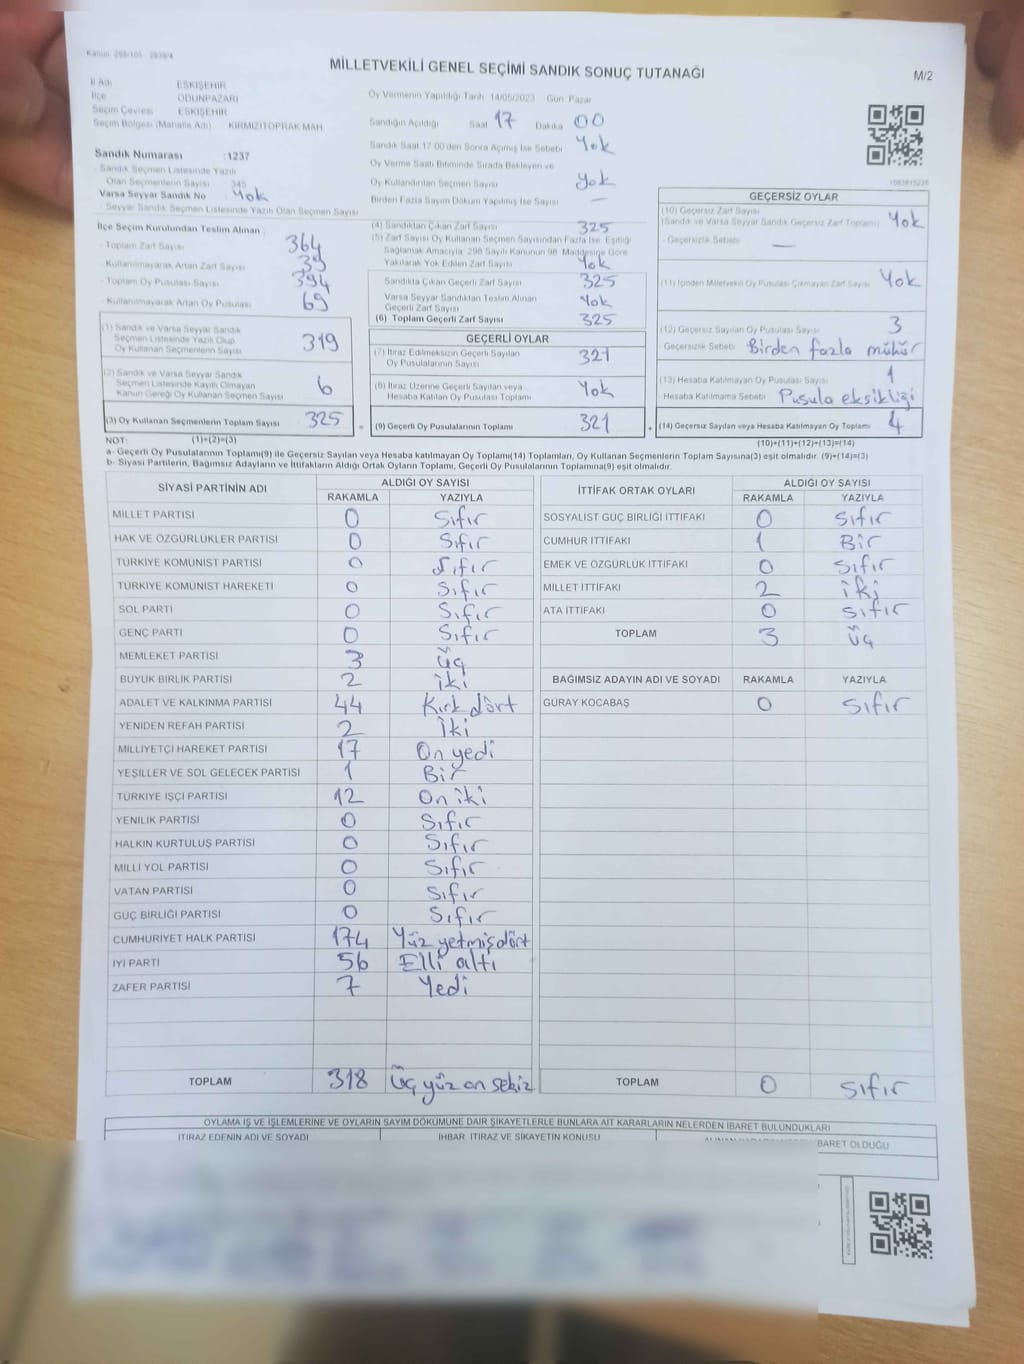 Kanun 298/105 2839/4
MİLLETVEKİLİ GENEL SEÇİMİ SANDIK SONUÇ TUTANAĞI
M/2
İl Adı ESKİŞEHİR
İlçe ODUNPAZARI
Seçim Çevresi ESKİŞEHİR
Seçim Bölgesi (Mahalle Adı) KIRMIZITOPRAK MAH.
Oy Vermenin Yapıldığı Tarih 14/05/2023 Gün Pazar
Sandığın Açıldığı Saat 17 Dakika 00
Sandık Saat 17.00'den Sonra Açılmış İse Sebebi Yok
Oy Verme Saati Bitiminde Sırada Bekleyen ve
Oy Kullandırılan Seçmen Sayısı Yok
Birden Fazla Sayım Döküm Yapılmış İse Sayısı —
Sandık Numarası :1237
- Sandık Seçmen Listesinde Yazılı
Olan Seçmenlerin Sayısı 345
Varsa Seyyar Sandık No Yok
- Seyyar Sandık Seçmen Listesinde Yazılı Olan Seçmen Sayısı
İlçe Seçim Kurulundan Teslim Alınan :
- Toplam Zarf Sayısı 364
- Kullanılmayarak Artan Zarf Sayısı 39
- Toplam Oy Pusulası Sayısı 394
- Kullanılmayarak Artan Oy Pusulası 69
(1) Sandık ve Varsa Seyyar Sandık
Seçmen Listesinde Yazılı Olup
Oy Kullanan Seçmenlerin Sayısı 319
(2) Sandık ve Varsa Seyyar Sandık
Seçmen Listesinde Kayıtlı Olmayan
Kanun Gereği Oy Kullanan Seçmen Sayısı 6
(3) Oy Kullanan Seçmenlerin Toplam Sayısı 325
(4) Sandıktan Çıkan Zarf Sayısı 325
(5) Zarf Sayısı Oy Kullanan Seçmen Sayısından Fazla İse, Eşitliği
Sağlamak Amacıyla, 298 Sayılı Kanunun 98. Maddesine Göre
Yakılarak Yok Edilen Zarf Sayısı Yok
Sandıkta Çıkan Geçerli Zarf Sayısı 325
Varsa Seyyar Sandıktan Teslim Alınan
Geçerli Zarf Sayısı Yok
(6) Toplam Geçerli Zarf Sayısı 325
GEÇERLİ OYLAR
(7) İtiraz Edilmeksizin Geçerli Sayılan
Oy Pusulalarının Sayısı 321
(8) İtiraz Üzerine Geçerli Sayılan veya
Hesaba Katılan Oy Pusulası Toplamı Yok
= (9) Geçerli Oy Pusulalarının Toplamı 321
GEÇERSİZ OYLAR
(10) Geçersiz Zarf Sayısı
(Sandık ve Varsa Seyyar Sandık Geçersiz Zarf Toplamı) Yok
- Geçersizlik Sebebi —
(11) İçinden Milletvekili Oy Pusulası Çıkmayan Zarf Sayısı Yok
(12) Geçersiz Sayılan Oy Pusulası Sayısı 3
- Geçersizlik Sebebi Birden fazla mühür
(13) Hesaba Katılmayan Oy Pusulası Sayısı 1
- Hesaba Katılmama Sebebi Pusula eksikliği
+ (14) Geçersiz Sayılan veya Hesaba Katılmayan Oy Toplamı 4
NOT: (1)+(2)=(3) (10)+(11)+(12)+(13)=(14)
a- Geçerli Oy Pusulasının Toplamı(9) ile Geçersiz Sayılan veya Hesaba katılmayan Oy Toplamı(14) Toplamları, Oy Kullanan Seçmenlerin Toplam Sayısına(3) eşit olmalıdır. (9)+(14)=(3)
b- Siyasi Partilerin, Bağımsız Adayların ve İttifakların Aldığı Ortak Oyların Toplamı, Geçerli Oy Pusulalarının Toplamına(9) eşit olmalıdır.
SİYASİ PARTİNİN ADI ALDIĞI OY SAYISI
RAKAMLA YAZIYLA
MİLLET PARTİSİ 0 Sıfır
HAK VE ÖZGÜRLÜKLER PARTİSİ 0 Sıfır
TÜRKİYE KOMÜNİST PARTİSİ 0 Sıfır
TÜRKİYE KOMÜNİST HAREKETİ 0 Sıfır
SOL PARTİ 0 Sıfır
GENÇ PARTİ 0 Sıfır
MEMLEKET PARTİSİ 3 Üç
BÜYÜK BİRLİK PARTİSİ 2 İki
ADALET VE KALKINMA PARTİSİ 44 Kırk dört
YENİDEN REFAH PARTİSİ 2 İki
MİLLİYETÇİ HAREKET PARTİSİ 17 On yedi
YEŞİLLER VE SOL GELECEK PARTİSİ 1 Bir
TÜRKİYE İŞÇİ PARTİSİ 12 On iki
YENİLİK PARTİSİ 0 Sıfır
HALKIN KURTULUŞ PARTİSİ 0 Sıfır
MİLLİ YOL PARTİSİ 0 Sıfır
VATAN PARTİSİ 0 Sıfır
GÜÇ BİRLİĞİ PARTİSİ 0 Sıfır
CUMHURİYET HALK PARTİSİ 174 Yüz yetmiş dört
İYİ PARTİ 56 Elli altı
ZAFER PARTİSİ 7 Yedi
TOPLAM 318 Üç yüz on sekiz
İTTİFAK ORTAK OYLARI ALDIĞI OY SAYISI
RAKAMLA YAZIYLA
SOSYALİST GÜÇ BİRLİĞİ İTTİFAKI 0 Sıfır
CUMHUR İTTİFAKI 1 Bir
EMEK VE ÖZGÜRLÜK İTTİFAKI 0 Sıfır
MİLLET İTTİFAKI 2 İki
ATA İTTİFAKI 0 Sıfır
TOPLAM 3 Üç
BAĞIMSIZ ADAYIN ADI VE SOYADI RAKAMLA YAZIYLA
GÜRAY KOCABAŞ 0 Sıfır
TOPLAM 0 Sıfır
OYLAMA İŞ VE İŞLEMLERİNE VE OYLARIN SAYIM DÖKÜMÜNE DAİR ŞİKAYETLERLE BUNLARA AİT KARARLARIN NELERDEN İBARET BULUNDUKLARI
İTİRAZ EDENİN ADI VE SOYADI İHBAR, İTİRAZ VE ŞİKAYETİN KONUSU